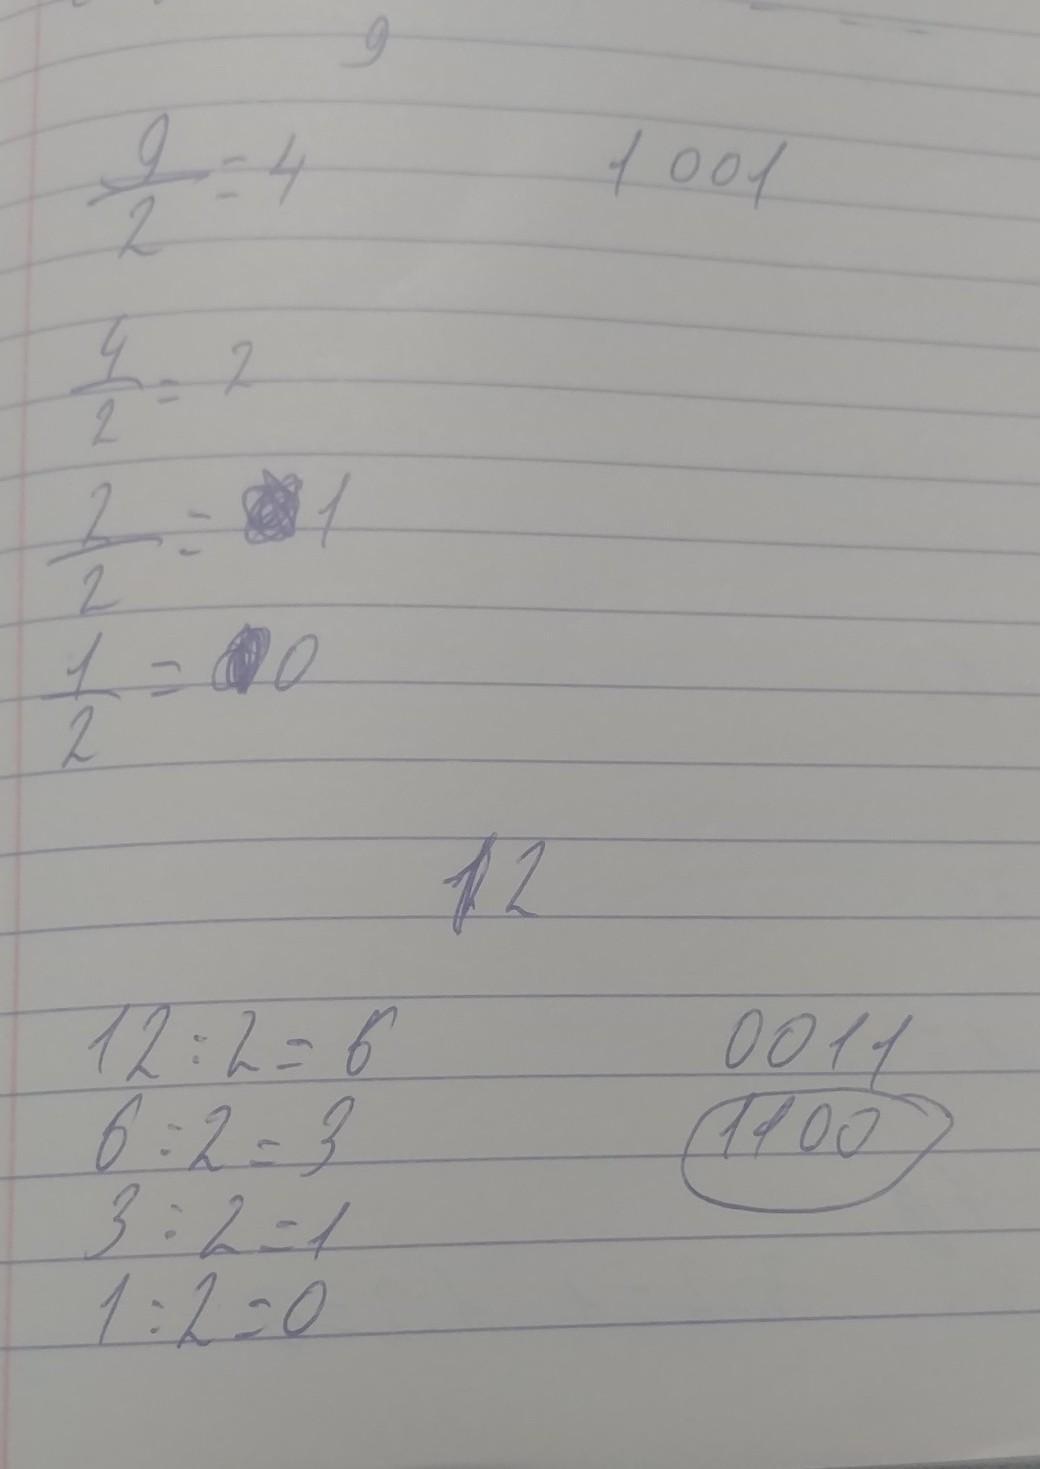 9
9/2 = 4 1001
4/2 = 2
2/2 = 1
1/2 = 0
12
12:2=6 0011
6:2=3 1100
3:2=1
1:2=0